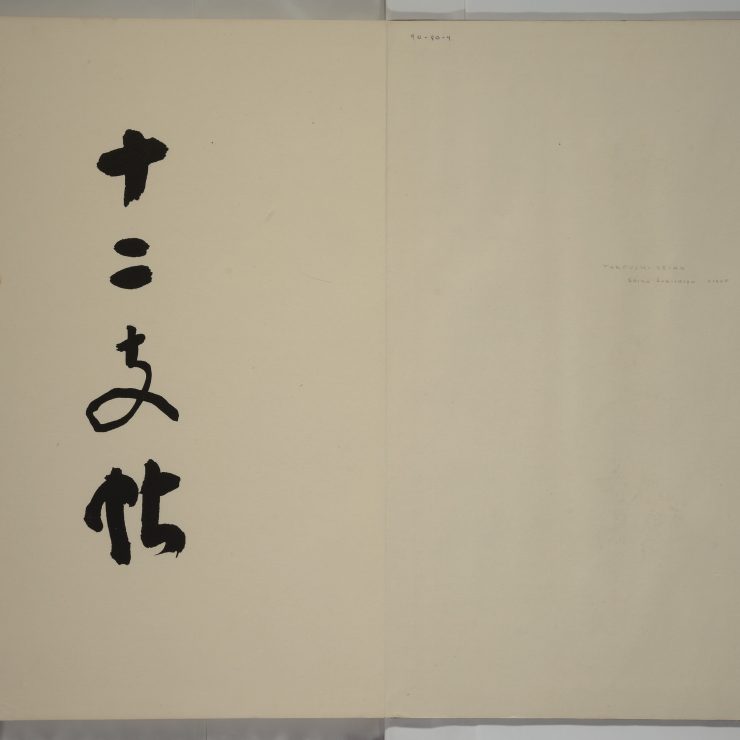 十二支帖
90-80-4
TAKEUCHI SEIHO